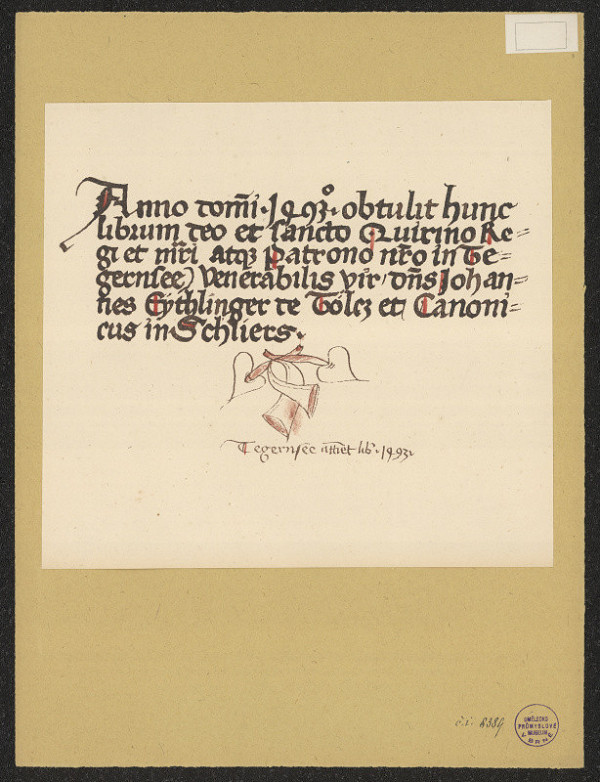 Anno dom̄i · 1493° · obtulit hunc
librum deo et sancto Quirino Re=
gi et mr̄i atqꝫ patrono nr̄o in Te=
gernsee) Venerabilis vir dn̄s Johan=
nes Eÿthlinger de Tölcz et Canoni=
cus in Schliers ·
Tegernsēe lib̄ · 1493 ·
č.i. 8389
UMĚLECKO
PRŮMYSLOVÉ
MUSEUM
V BRNĚ